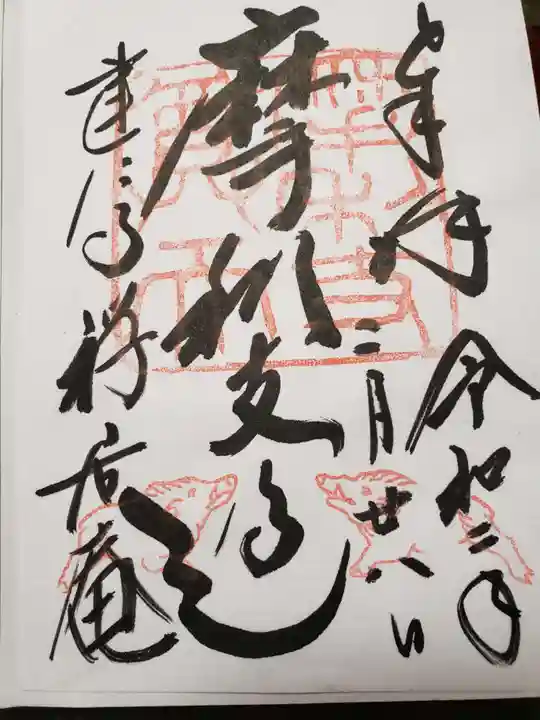 奉拝
令和二年
二月廿八日
摩利支尊天
建仁寺禅居庵